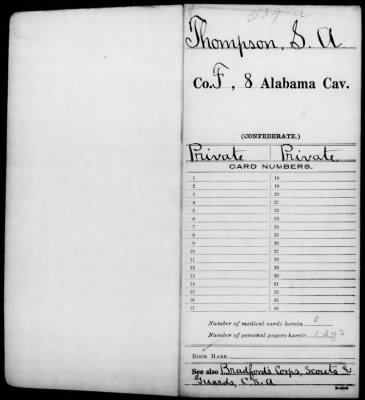 Thompson, S. A.
Co. F, 8 Alabama Cav.
(CONFEDERATE.)
Private Private
CARD NUMBERS.
1 18
2 19
3 20
4 21
5 22
6 23
7 24
8 25
9 26
10 27
11 28
12 29
13 30
14 31
15 32
16 33
17 34
Number of medical cards herein 0
Number of personal papers herein
BOOK MARK:
See also Bradford's Corps, Scouts &
Guards, C. S. A.